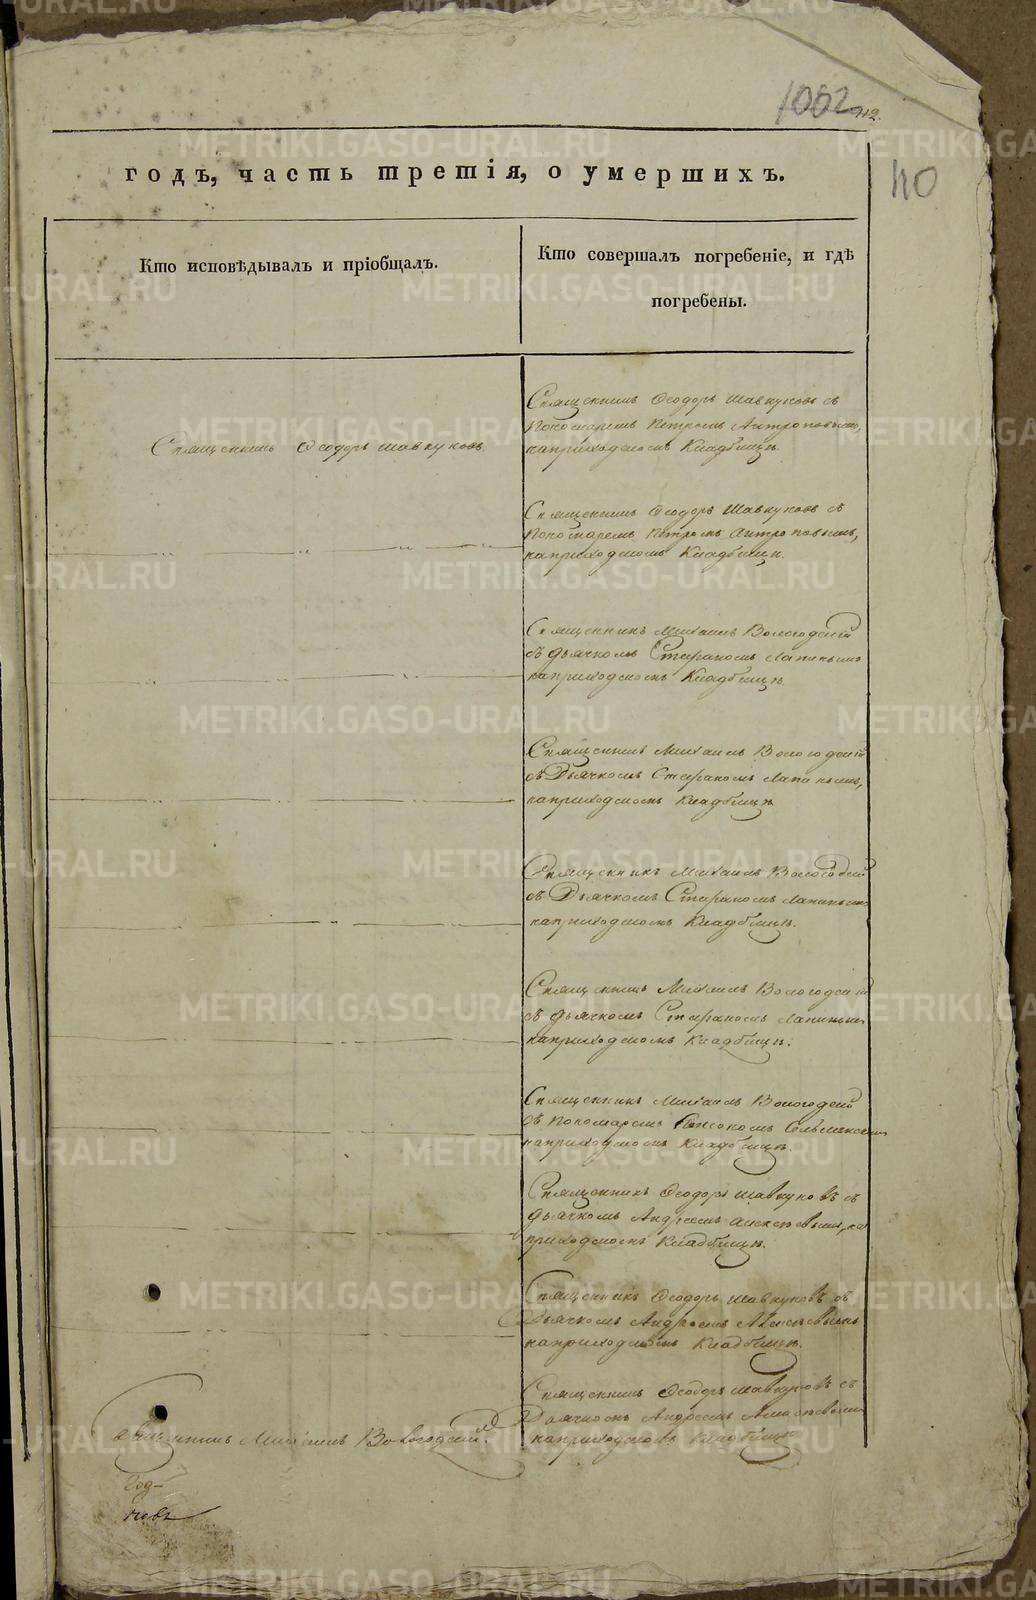 1002
912.
110
годъ, часть третія, о умершихъ.
Кто исповѣдывалъ и пріобщалъ.
Кто совершалъ погребеніе, и гдѣ
погребены.
Священникъ Ѳеодоръ Шавкуновъ.
Священникъ Ѳеодоръ Шавкуновъ съ
Пономаремъ Петромъ Антроповымъ,
наприходскомъ Кладбищѣ.
Священникъ Ѳеодоръ Шавкуновъ съ
Пономаремъ Петромъ Антроповымъ,
наприходскомъ Кладбищѣ.
Священникъ Михаилъ Вологодскій
съ дьячкомъ Стефаномъ Лапинымъ
наприходскомъ Кладбищѣ.
Священникъ Михаилъ Вологодскій
съ Дьячкомъ Стефаномъ Лапинымъ,
наприходскомъ Кладбищѣ
Священникъ Михаилъ Вологодскій
съ Дьячкомъ Стефаномъ Лапинымъ
наприходскомъ Кладбищѣ.
Священникъ Михаилъ Вологодскій
съ дьячкомъ Стефаномъ Лапинымъ
наприходскомъ Кладбищѣ.
Священникъ Михаилъ Вологодскій
съ Пономаремъ
наприходскомъ Кладбищѣ.
Священникъ Ѳеодоръ Шавкуновъ съ
дьячкомъ Андреемъ Алексѣевымъ, на
приходскомъ Кладбищѣ.
Священникъ Ѳеодоръ Шавкуновъ съ
Дьячкомъ Андреемъ Алексѣевымъ
наприходскомъ Кладбищѣ.
Священникъ Ѳеодоръ Шавкуновъ съ
Дьячкомъ Андреемъ Алексѣевымъ
наприходскомъ Кладбищѣ
Священникъ Михаилъ Вологодский.
METRIKI.GASO-URAL.RU